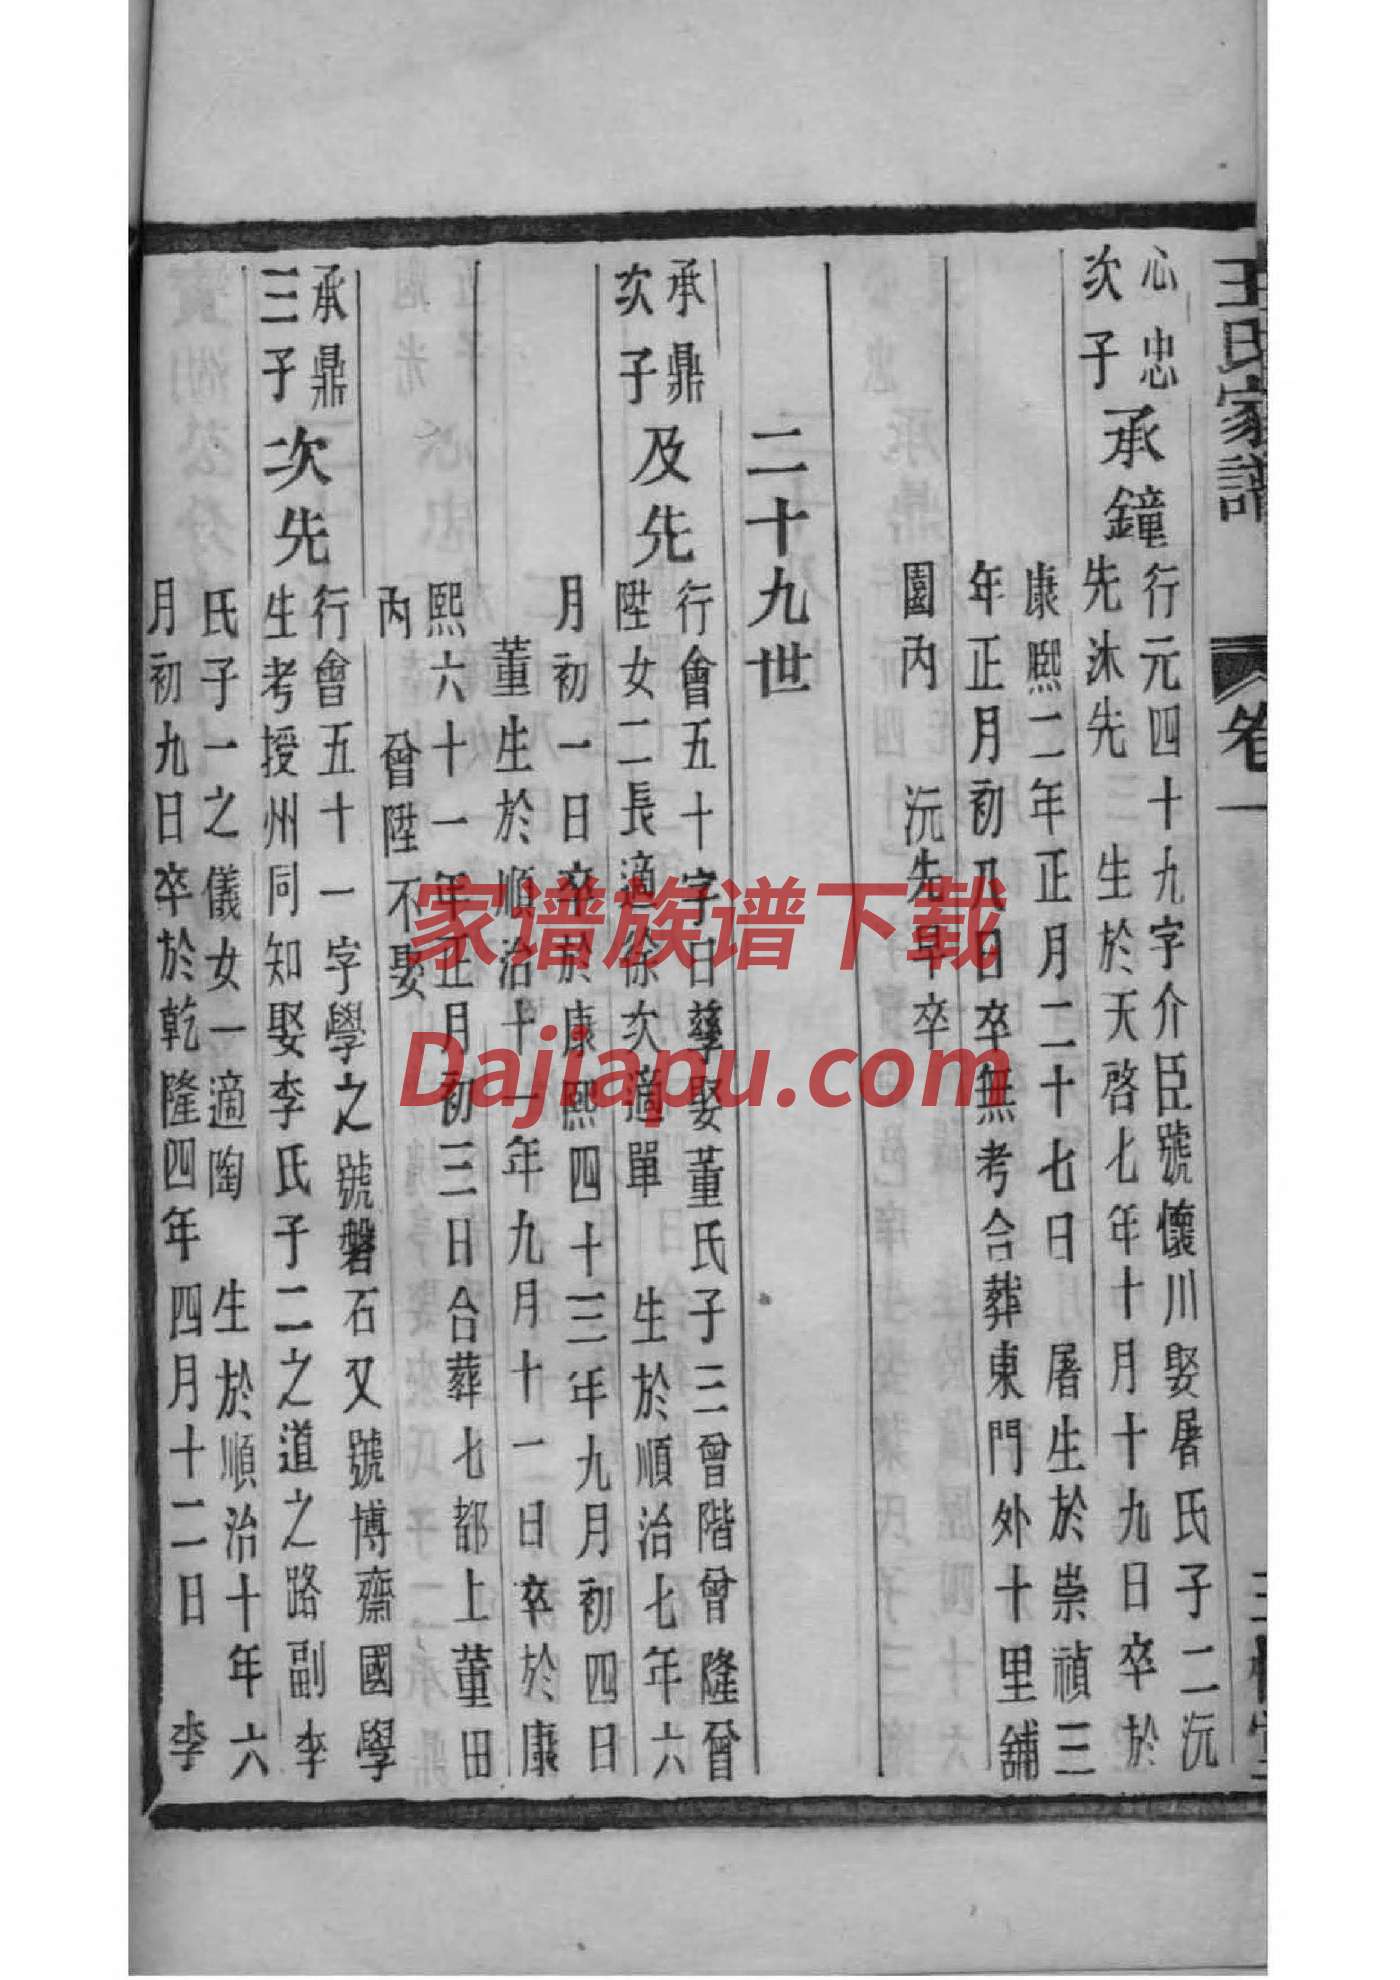 王氏家譜
卷一
心忠
次子
承鐘
行元四十九字介臣號懷川娶屠氏子二沅
先沐先 生於天啓七年十月十九日卒於
康熙二年正月二十七日 屠生於崇禎三
年正月初八日卒無考合葬東門外十里舖
園內 沅先早卒
二十九世
承鼎
次子
及先
行會五十字曰孳娶董氏子三曾階曾隆曾
陞女二長適徐次適單 生於順治七年六
月初一日卒於康熙四十三年九月初四日
董生於順治十一年九月十一日卒於康
熙六十一年正月初三日合葬七都上董田
內 曾陞不娶
承鼎
三子
次先
行會五十一字學之號磐石又號博齋國學
生考授州同知娶李氏子二之道之路副李
氏子一之儀女一適陶 生於順治十年六
月初九日卒於乾隆四年四月十二日 李
家谱族谱下载
Dajiapu.com